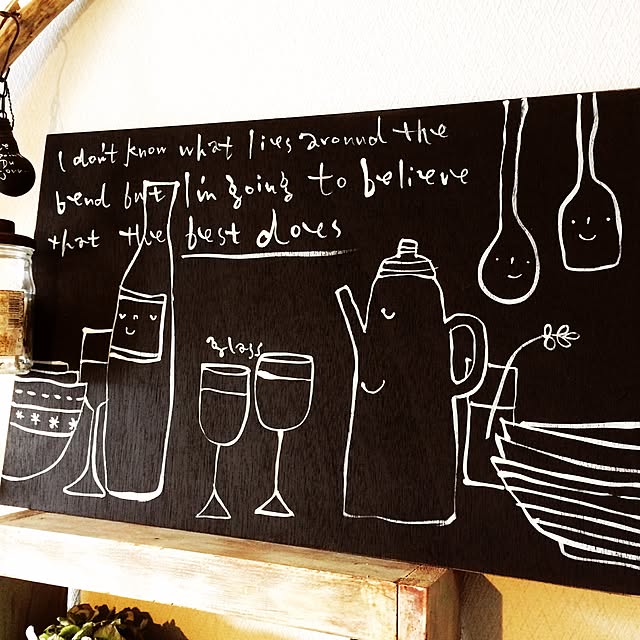 I don't know what lies around the
bend but I'm going to believe
that the best does
glass